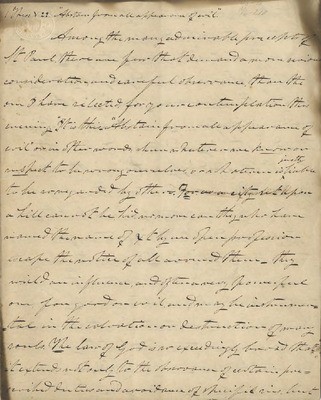 1 Thess 5:22 "Abstain from all appearance of evil"
Among the many admirable precepts of
St Paul there are few that demand a more serious
consideration and careful observance than the
one I have selected for your contemplation this
evening. It is this "Abstain from all appearance of
evil" or in other words shun whatever we know or
suspect to be wrong ourselves or what
justly
to be so regarded by others. For as a city set upon
a hill cannot be hid no more can they who have
named the name of Xt by an open profession
escape the notice of all around them — they
wield an influence and often a very powerful
one for good or evil and may be instrumen-
tal in the salvation or destruction of many
souls. The law of God is exceedingly broad tho
it extends not only to the observance of certain pre-
scribed duties and avoidance of specific sins, but